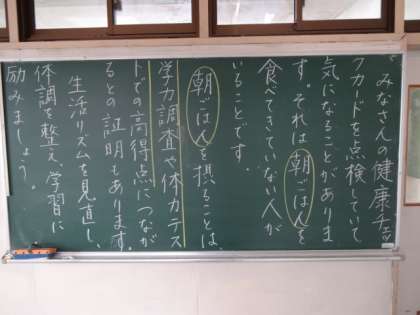 みなさんの健康チェッ
クカードを点検していて
気になることがありま
す。それは朝ごはんを
食べてきていない人が
いることです。
朝ごはんを摂ることは、
学力調査や体力テス
トでの高得点につなが
るとの証明もあります。
生活リズムを見直し、
体調を整え、学習に
励みましょう。